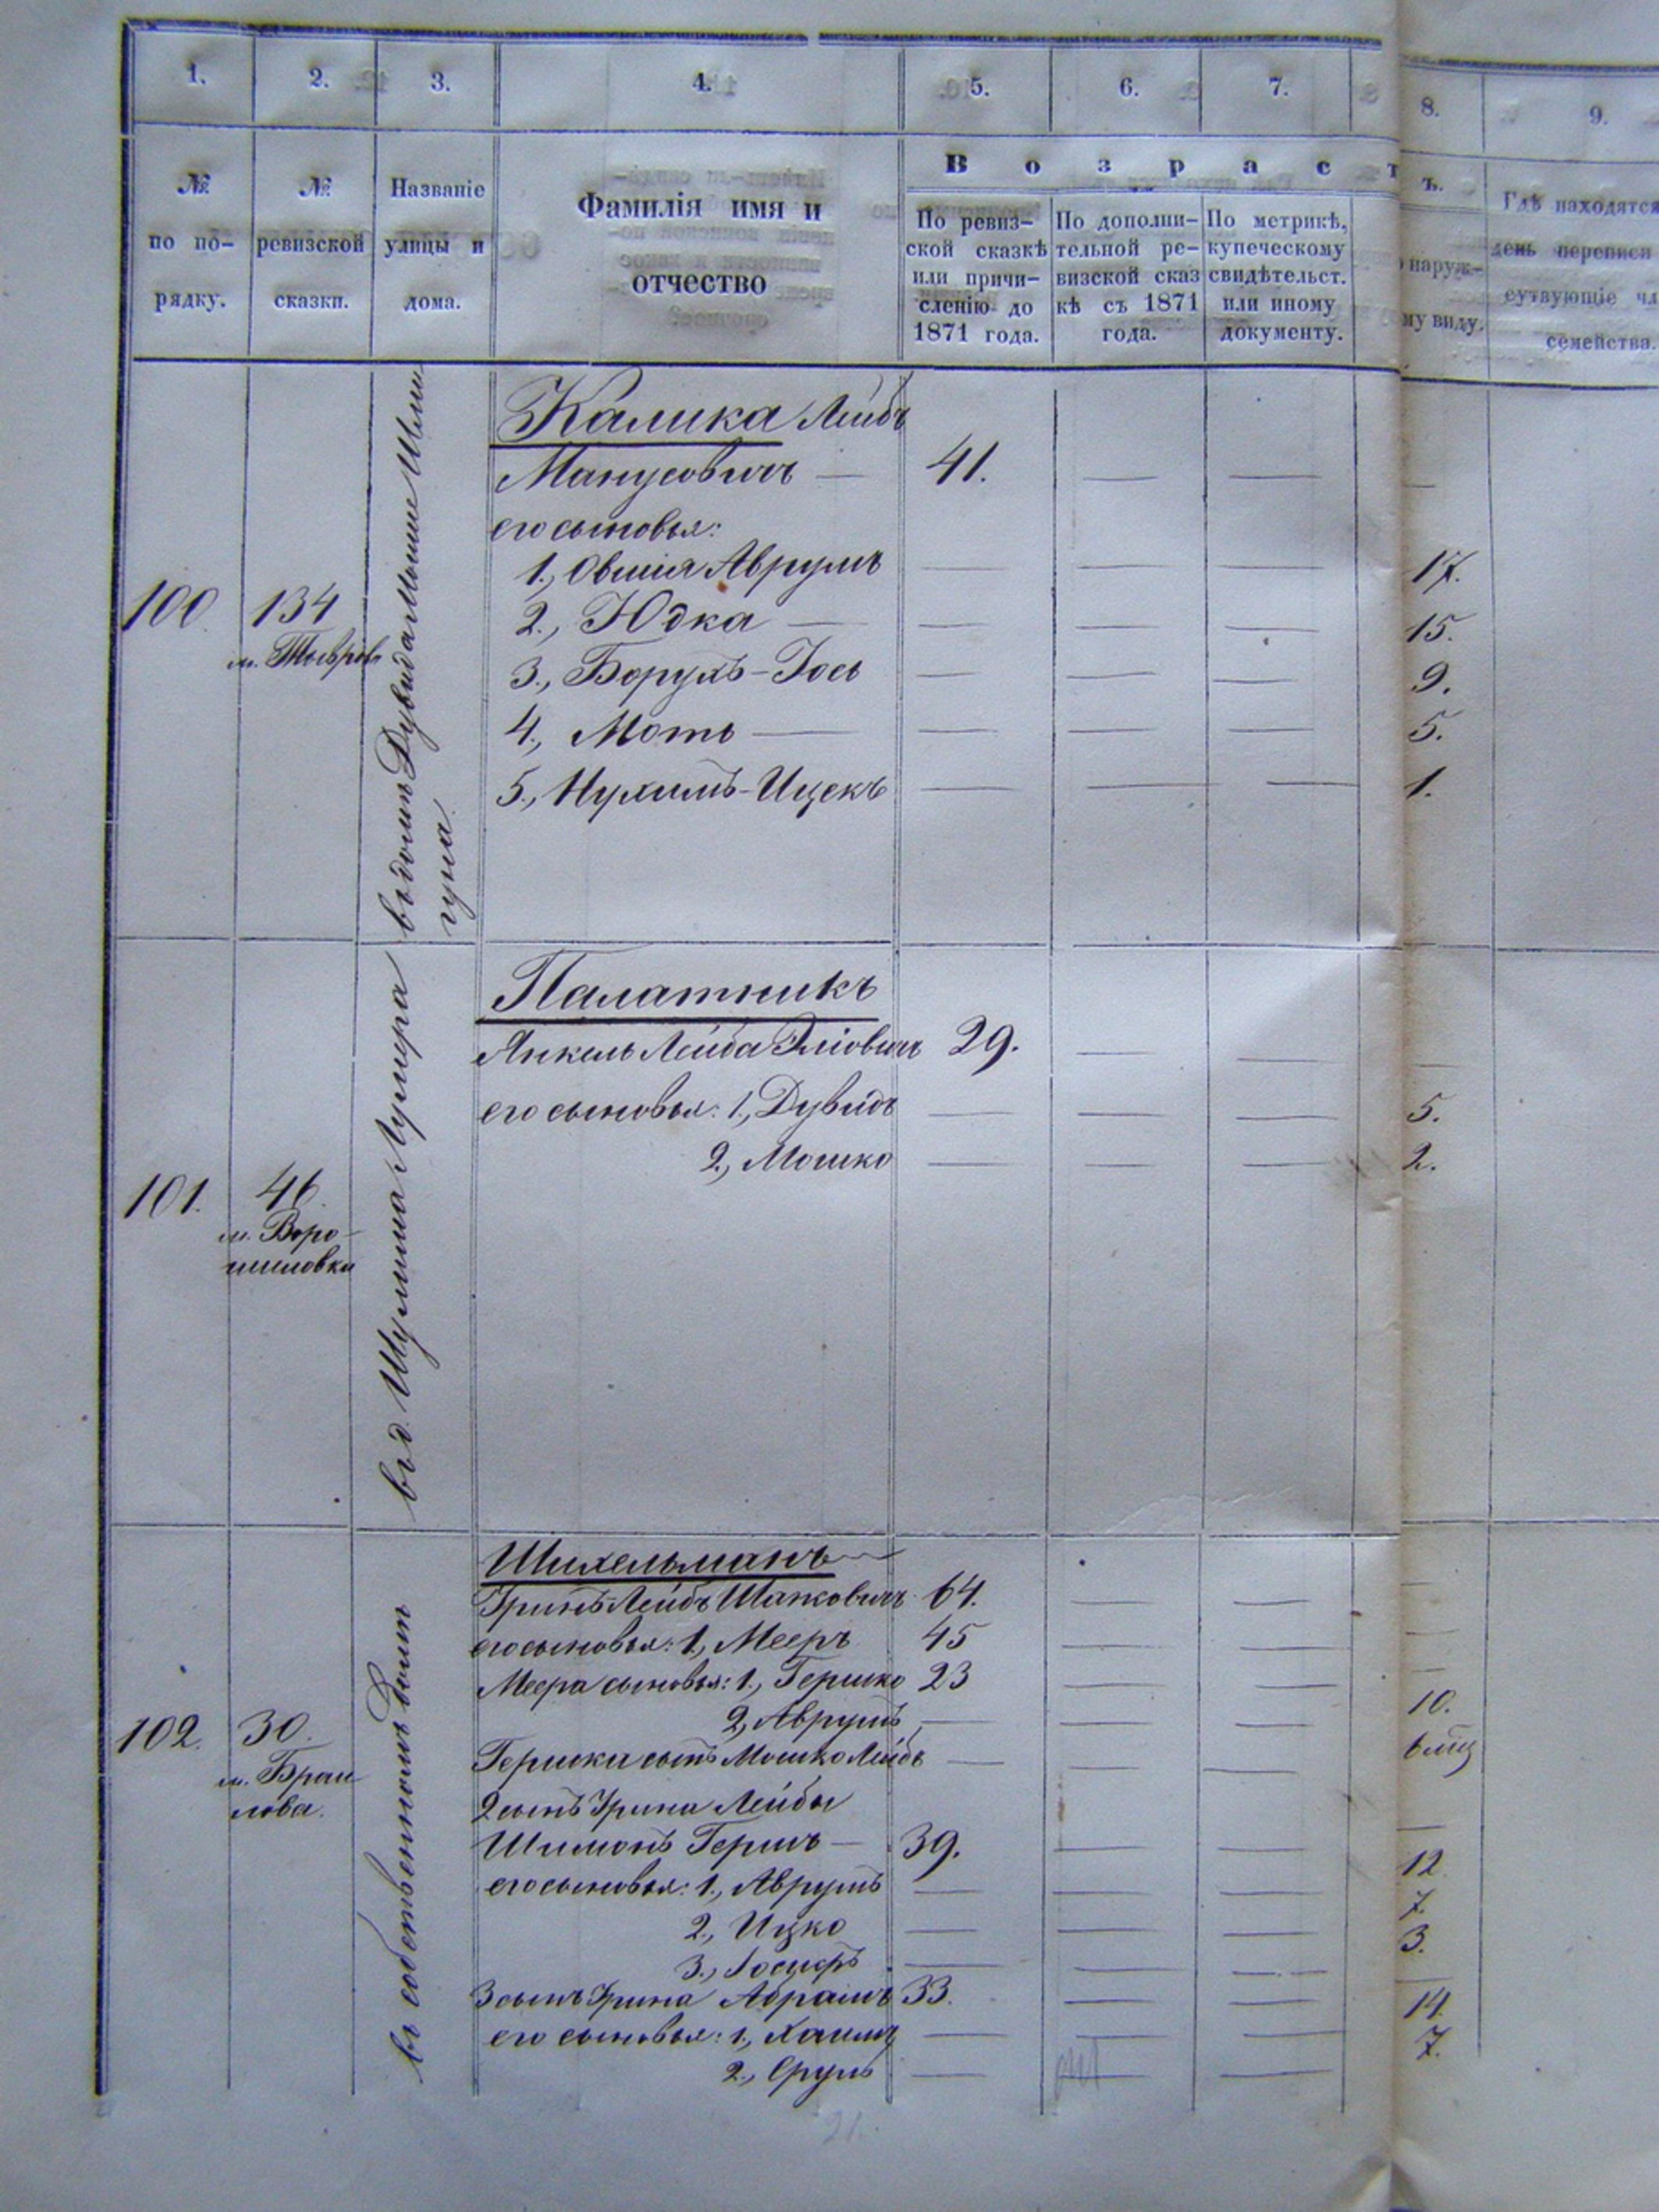 1.
2.
3.
4.
5.
6.
7.
8.
9.
№
по по-
рядку.
№
ревизской
сказки.
Названіе
улицы и
дома.
Фамилія имя и
отчество
В о з р а с т
ъ.
По ревиз-
ской сказкѣ
или причи-
сленію до
1871 года.
По дополни-
тельной ре-
визской сказ
кѣ съ 1871
года.
По метрикѣ,
купеческому
свидѣтельст.
или иному
документу.
наруж-
му виду.
Гдѣ находятся
день переписи
сутвующіе чл
семейства.
100
134
м.
въ домѣ Дувида Мошке
гуна.
Калика Лейбъ
Манусовичъ — 41. — — —
его сыновья:
1., Овшія Аврумъ — — — 17.
2., Юдка — — — — 15.
3., Борухъ-Іось — — — 9.
4., Моть — — — — 5.
5., Нухимъ-Ицекъ — — — 1.
101.
46.
м. Воро-
шиловки
въ д. Шулима
Палатникъ
Янкель Лейба Эліовичъ 29. — — —
его сыновья: 1., Дувидъ — — — 5.
2., Мошко — — — 2.
102.
30.
м. Браи
лова.
въ собственномъ домѣ
Шихельманъ
Лейбъ 64. — — —
его сыновья: 1., Мееръ 45 — — —
Меера сыновья: 1., Гершко 23 — — —
2., Аврумъ — — — 10.
Гершки сынъ Мошко Лейбъ — — — 6 мѣц
2 сынъ Лейбы
Шимонъ Гершъ — 39. — — —
его сыновья: 1., Аврумъ — — — 12.
2., Ицко — — — 7.
3., — — — 3.
3 сынъ Абрамъ 33. — — —
его сыновья: 1., Хаимъ — — — 14.
2., Сруль — — — 7.